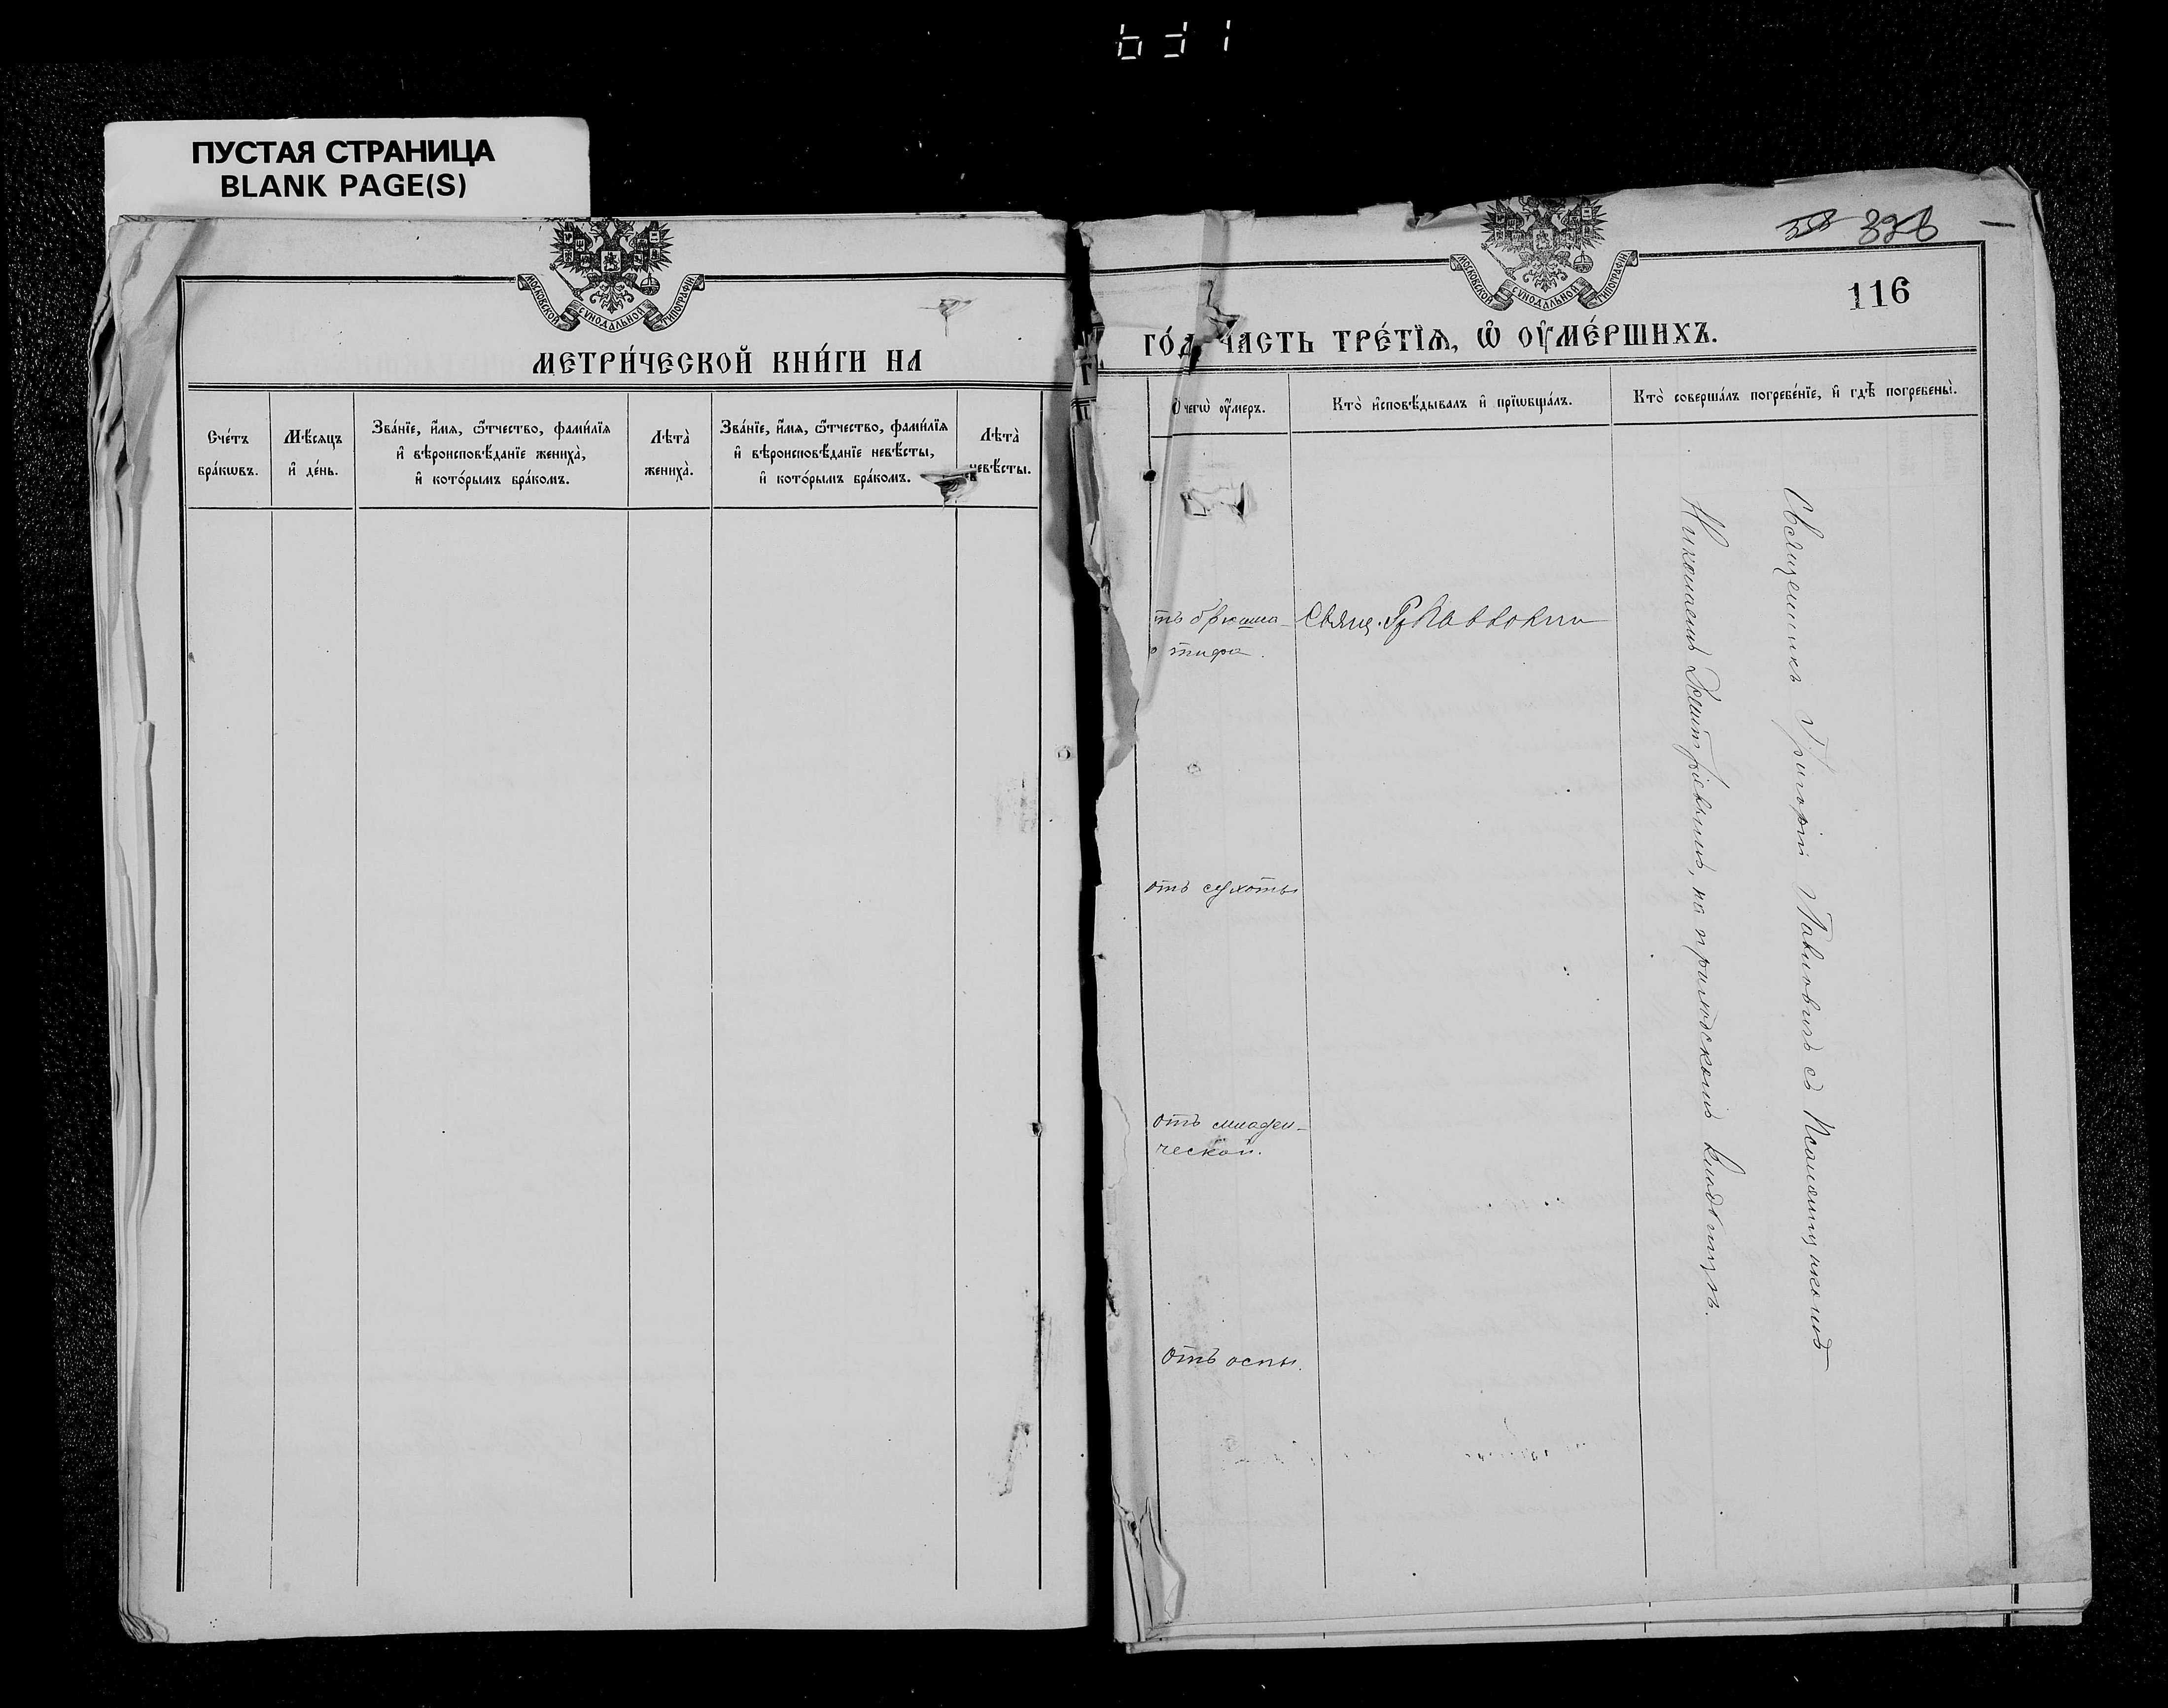 ПУСТАЯ СТРАНИЦА
BLANK PAGE(S)
МОСКОВСКОЙ СѴНОДАЛЬНОЙ ТИПОГРАФІИ
МЕТРИ́ЧЕСКОЙ КНИ́ГИ НА
Сче́тъ бра́кωвъ.
Мѣ́сяцъ и҆ де́нь.
Зва́нїе, и҆́мя, ѻ҆́тчество, фами́лїя
и҆ вѣроисповѣ́данїе жениха̀,
и҆ кото́рымъ бра́комъ.
Лѣта̀ жениха̀.
Зва́нїе, и҆́мя, ѻ҆́тчество, фами́лїя
и҆ вѣроисповѣ́данїе невѣ́сты,
и҆ кото́рымъ бра́комъ.
Лѣта̀ невѣ́сты.
326
МОСКОВСКОЙ СѴНОДАЛЬНОЙ ТИПОГРАФІИ
116
ГО́ДЪ ЧАСТЬ ТРЕ́ТЇЯ, Ѡ҆ ОУ҆МЕ́РШИХЪ.
чегѡ̀ оу҆́меръ.
Кто̀ и҆сповѣ́дывалъ и҆ прїѡбща́лъ.
Кто̀ соверша́лъ погребе́нїе, и҆ гдѣ̀ погребены̀.
тъ брюшна-
о тифа.
Свящ. Гр Павловичъ
отъ сухоты
отъ младен-
ческой.
отъ оспы.
Священникъ Григорій Павловичъ съ Псаломщикомъ
Николаемъ Дмитріевымъ, на приходскомъ кладбищѣ.